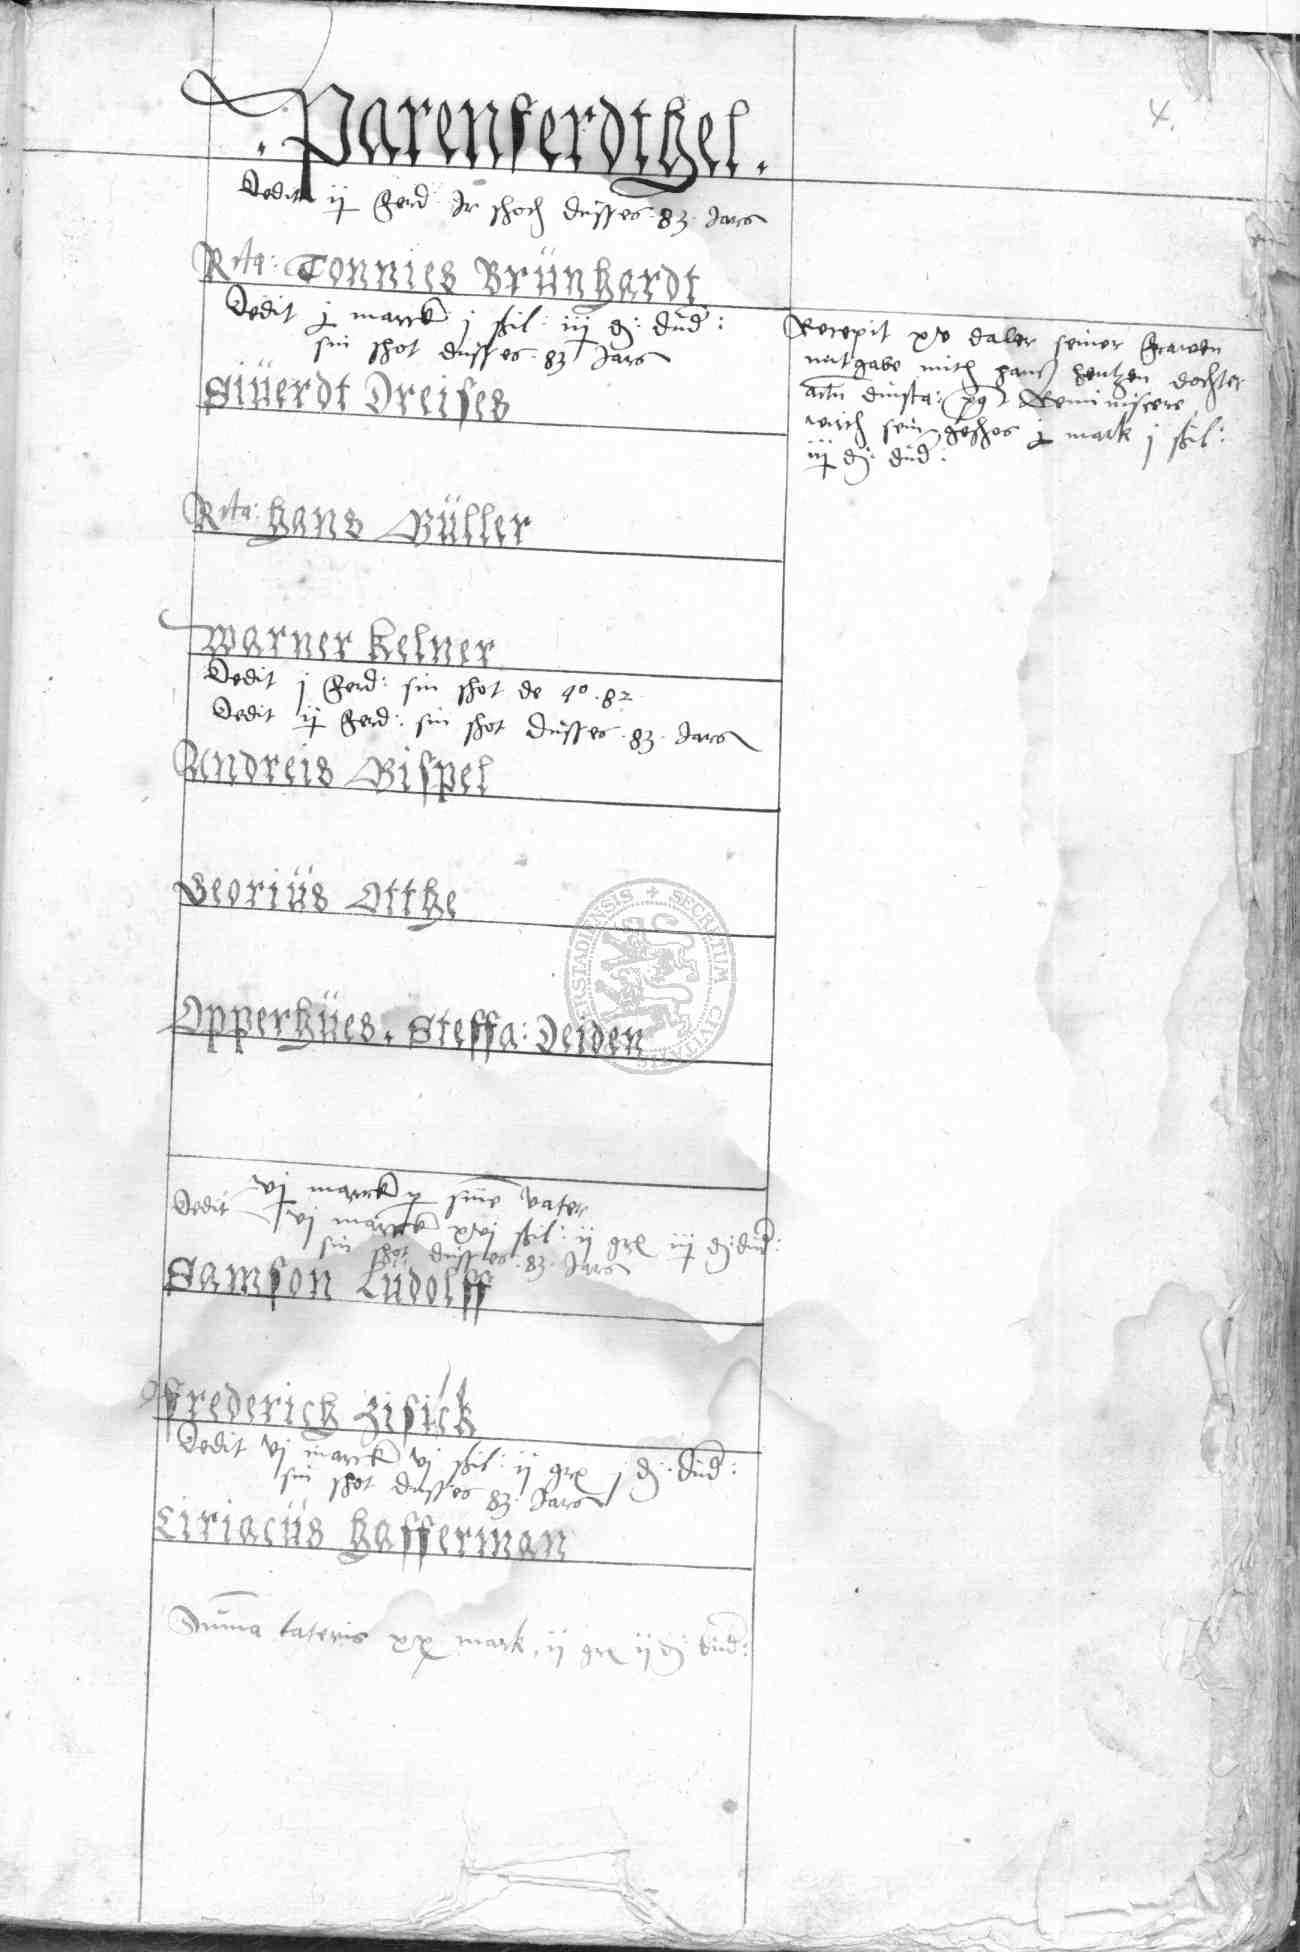 4.
Parenferdthel.
Dedit ij ferd: Ir schoch dusses 83 Jars
Rta: Tonnies Brünhardt
Dedit j marck j shil: iij d: dnd:
sin shot dusses 83 Jars
Siüerdt Dreises
Recepit xv daler seiner frawen
mitgabe mith hans hentzen dochter
dinsta: Reminiscere
sein geshos j mark j shil:
iij d: dnd:
Rta: hans Büller
Warner Kelner
Dedit j ferd: sin shot de ao 82
Dedit ij ferd: sin shot dusses 83 Jars
Andreis Bispel
Georiüs Otthe
Opperhües. Steffa: Deiden
vj marck sine vater
Dedit vj marck xvj shil: ij gr iij d: dnd:
sin shot dusses 83 Jars
Samson Ludolff
Frederich Zisick
Dedit vj marck vj shil: ij gr j d: dnd:
sin shot dusses 83 Jars
Ciriacüs hafferman
Suma lateris xx mark, ij gr ij d: dnd:
SECRETUM CIVITATIS ERSTADIENSIS